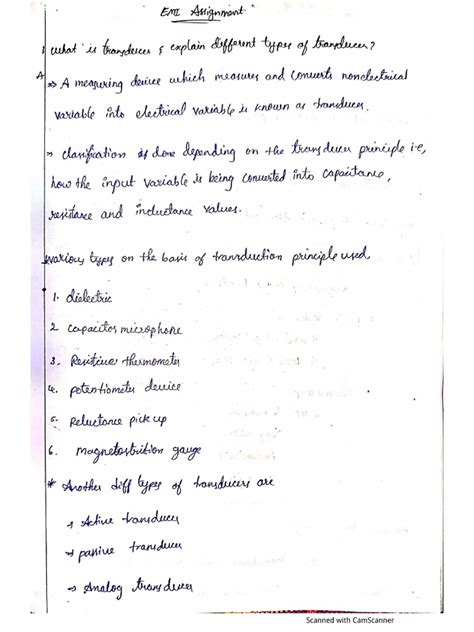 EMI Assignment
1 what is transducer & explain different types of transducer?
A
⇒ A measuring device which measures and converts nonelectrical
variable into electrical variable is known as transducer.
⇒ classification is done depending on the transducer principle i-e,
how the input variable is being converted into capacitance,
resistance and inductance values.
various types on the basis of transduction principle used
1. dielectric
2 capacitor microphone
3. Resistive thermometer
4. potentiometer device
5. Reluctance pick up
6. magnetostrition gauge
* Another diff types of transducers are
→ Active transducer
→ passive transducer
→ Analog transducer
Scanned with CamScanner